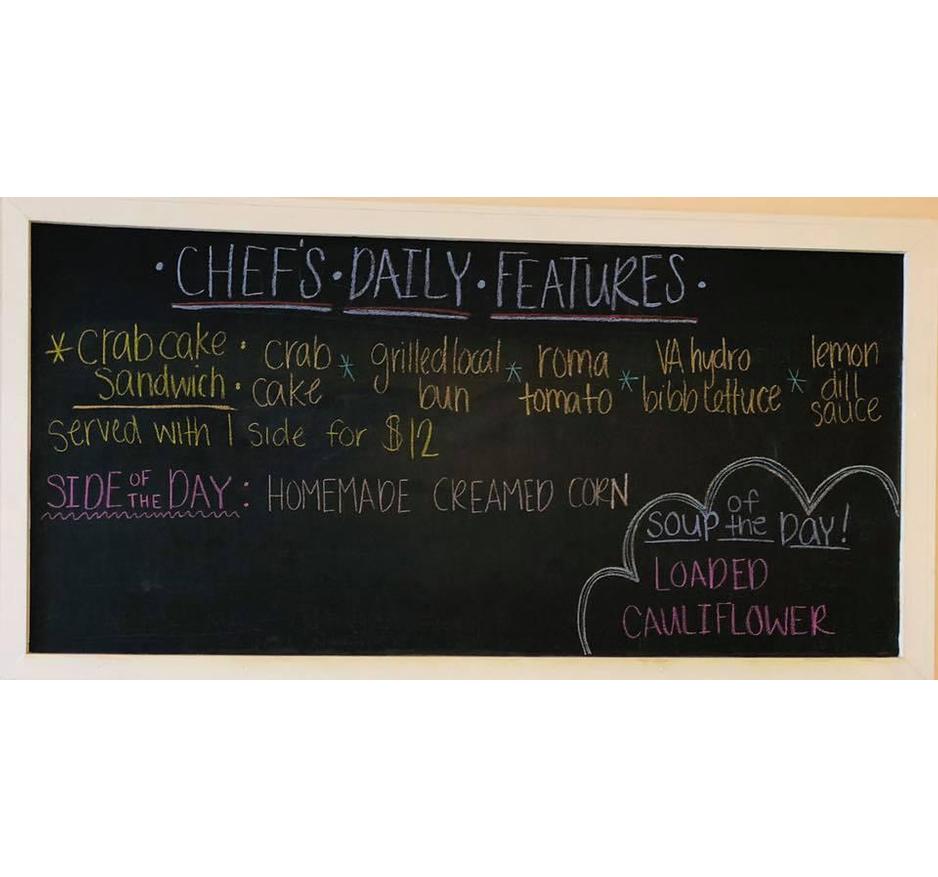 • CHEF'S • DAILY • FEATURES •
* Crab cake Sandwich : crab cake * grilled local bun * roma tomato * VA hydro bibb lettuce * lemon dill sauce
served with 1 side for $12
SIDE OF THE DAY: HOMEMADE CREAMED CORN
SOUP of the DAY!
LOADED
CAULIFLOWER